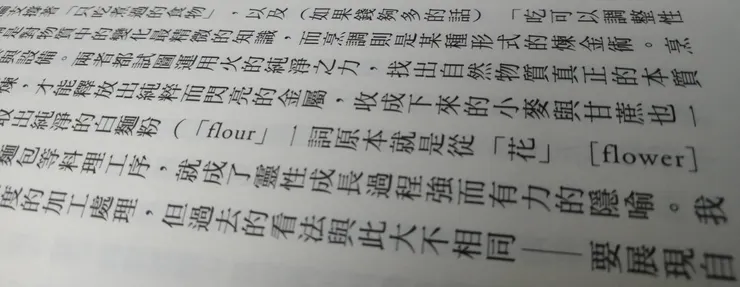 「只吃煮過的食物」，以及（如果錢夠多的話）「吃可以調整性
是對物質中的變化最精微的知識，而烹調則是某種形式的煉金術。烹
設備。兩者都試圖運用火的純淨之力，找出自然物質真正的本質
煉，才能釋放出純粹而閃亮的金屬，收成下來的小麥與甘蔗也一
取出純淨的白麵粉（「flour」一詞原本就是從「花」[flower]
麵包等料理工序，就成了靈性成長過程強而有力的隱喻。我
度的加工處理，但過去的看法與此大不相同——要展現自